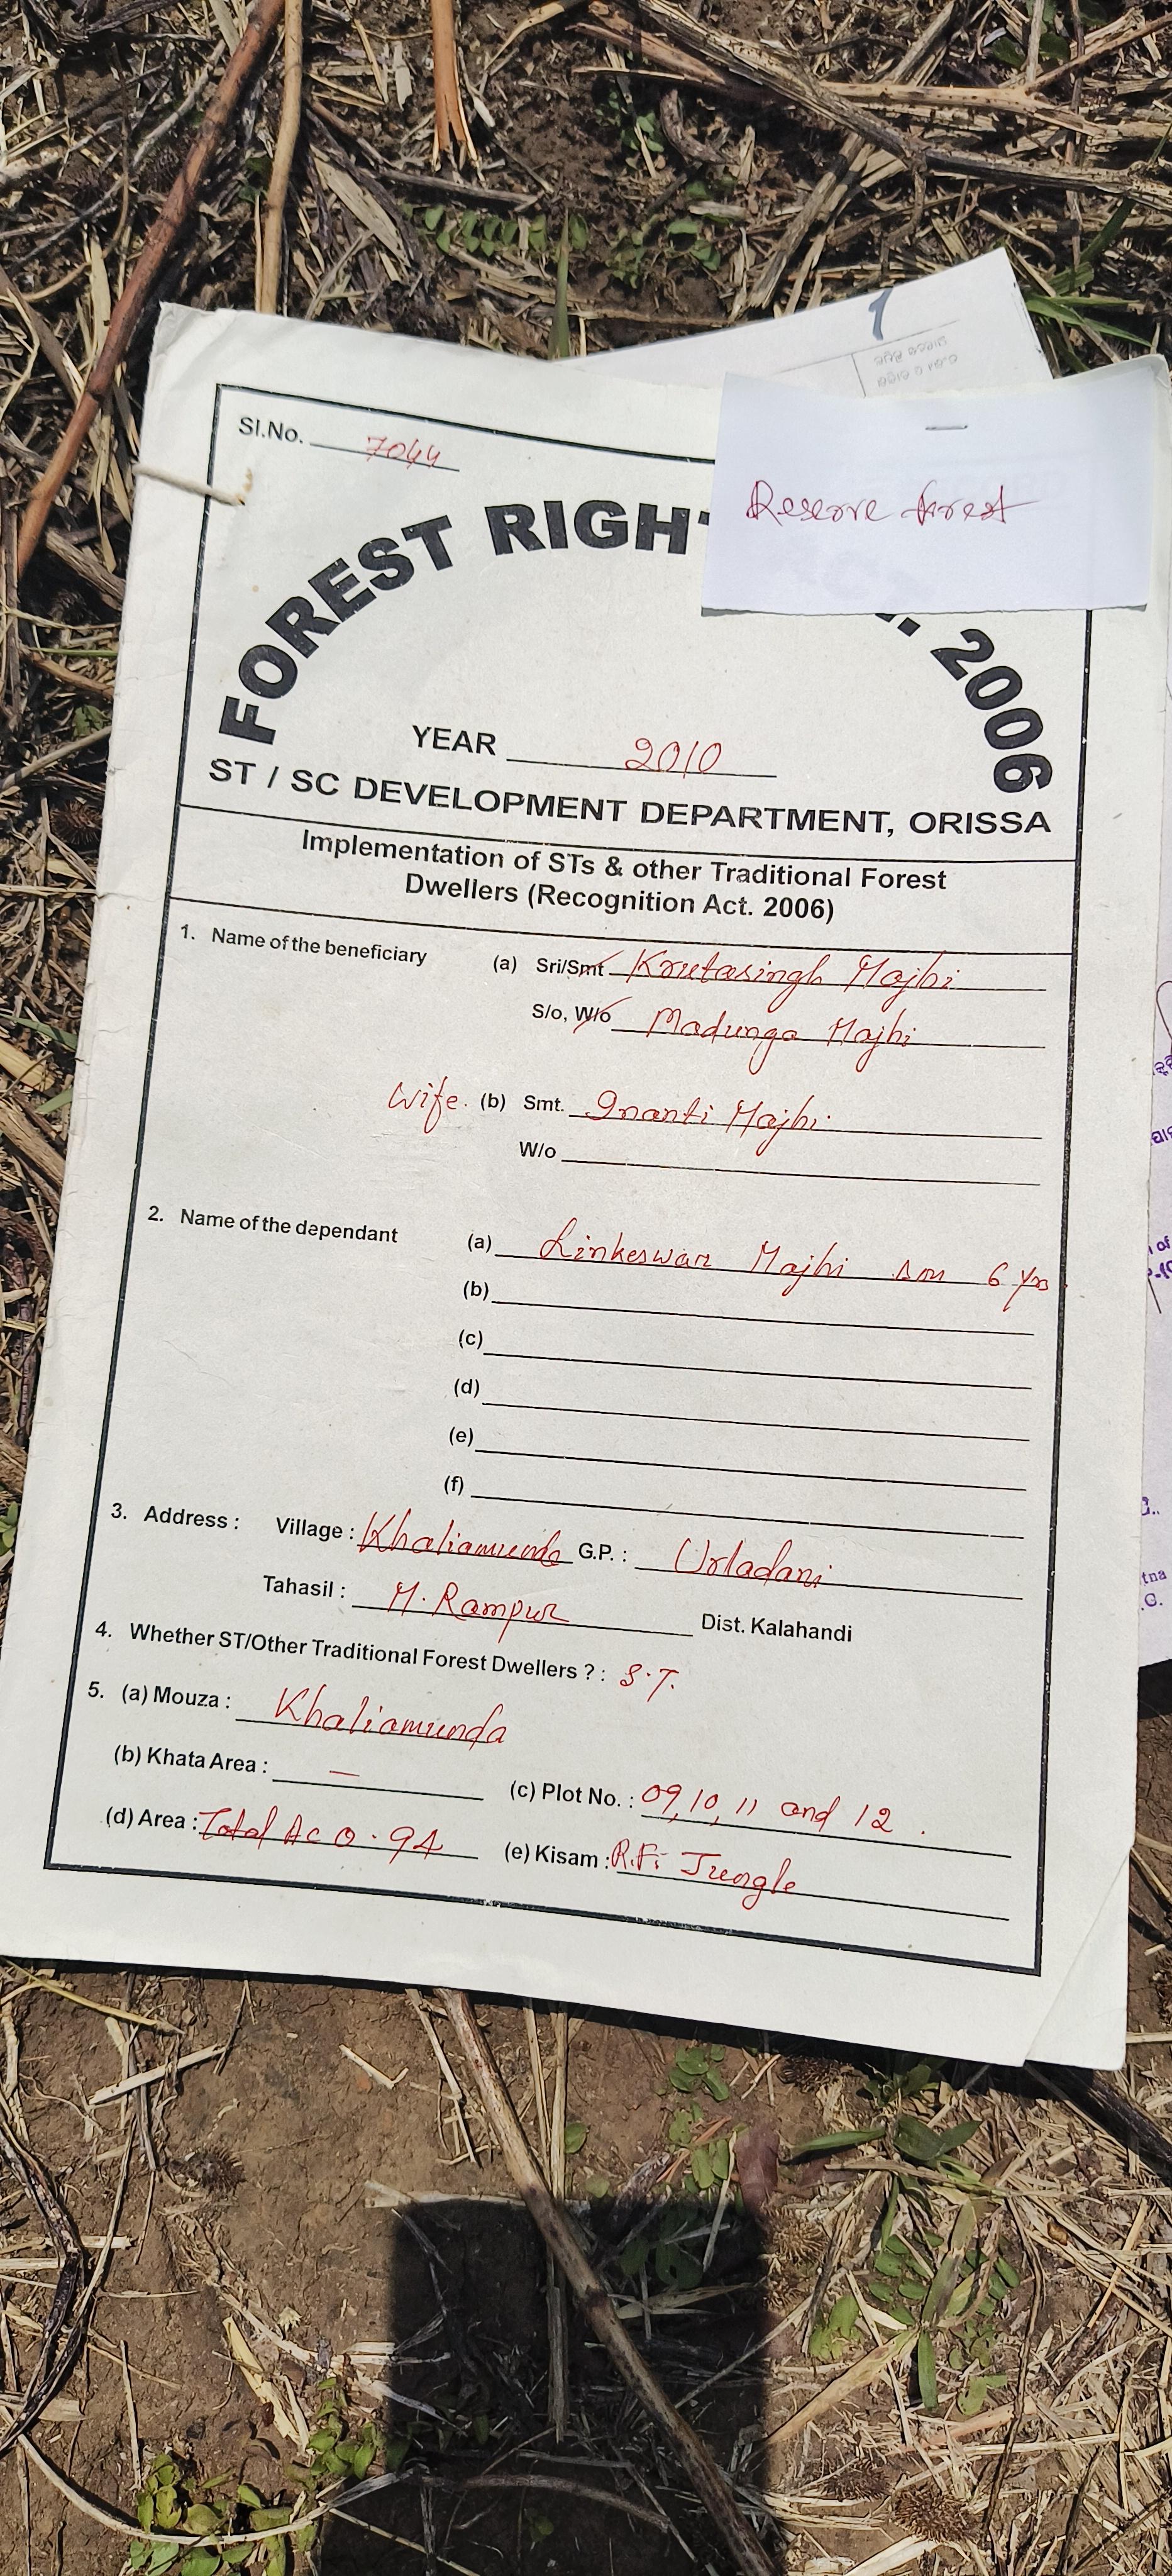 1
Sl.No. 7044
Reserve forest
FOREST RIGHT 2006
YEAR 2010
ST / SC DEVELOPMENT DEPARTMENT, ORISSA
Implementation of STs & other Traditional Forest
Dwellers (Recognition Act. 2006)
1. Name of the beneficiary (a) Sri/Smt Krutasingh Majhi
S/o, W/o Madunga Majhi
Wife. (b) Smt. Gnanti Majhi.
W/o
2. Name of the dependant (a) Linkeswar Majhi son 6 yrs
(b)
(c)
(d)
(e)
(f)
3. Address : Village : Khaliamunda G.P. : Urladani
Tahasil : M. Rampur Dist. Kalahandi
4. Whether ST/Other Traditional Forest Dwellers ? : S.T.
5. (a) Mouza : Khaliamunda
(b) Khata Area : — (c) Plot No. : 09, 10, 11 and 12.
(d) Area : Total Ac 0.94 (e) Kisam : R.F; Jungle